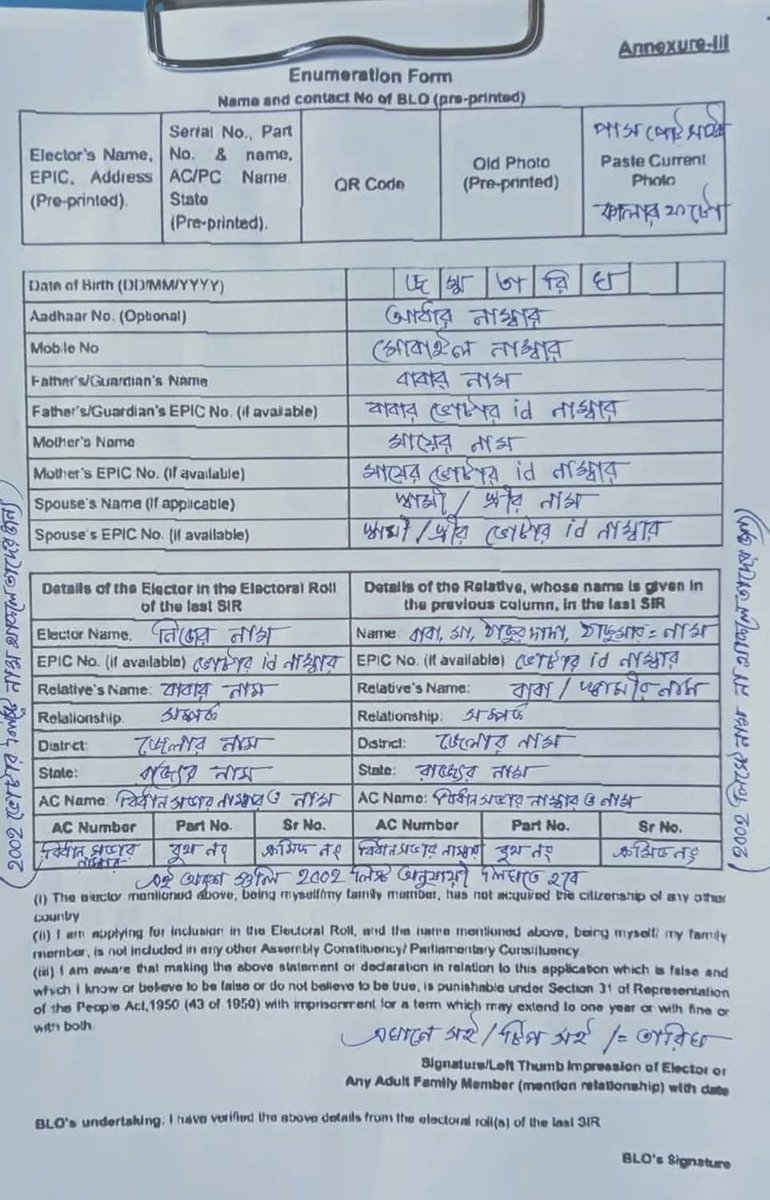 Annexure-III
Enumeration Form
Name and contact No of BLO (pre-printed)
Elector's Name, EPIC, Address (Pre-printed).
Serial No., Part No. & name, AC/PC Name State (Pre-printed).
QR Code
Old Photo (Pre-printed)
পাসপোর্ট সাইজ
Paste Current Photo
কালার ফটো
Date of Birth (DD/MM/YYYY) জন্ম তারিখ
Aadhaar No. (Optional) আধার নাম্বার
Mobile No মোবাইল নাম্বার
Father's/Guardian's Name বাবার নাম
Father's/Guardian's EPIC No. (if available) বাবার ভোটার id নাম্বার
Mother's Name মায়ের নাম
Mother's EPIC No. (if available) মায়ের ভোটার id নাম্বার
Spouse's Name (if applicable) স্বামী / স্ত্রীর নাম
Spouse's EPIC No. (if available) স্বামী / স্ত্রীর ভোটার id নাম্বার
(2002 ভোটার লিস্টে নাম থাকলে তাদের জন্য)
(2002 লিস্টে নাম না থাকলে তাদের জন্য)
Details of the Elector in the Electoral Roll of the last SIR
Details of the Relative, whose name is given in the previous column, in the last SIR
Elector Name. নিজের নাম
Name বাবা, মা, ঠাকুরদাদা, ঠাকুমার = নাম
EPIC No. (if available) ভোটার id নাম্বার
EPIC No. (if available) ভোটার id নাম্বার
Relative's Name: বাবার নাম
Relative's Name: বাবা / স্বামীর নাম
Relationship. সম্পর্ক
Relationship: সম্পর্ক
District: জেলার নাম
District: জেলার নাম
State: রাজ্যের নাম
State: রাজ্যের নাম
AC Name: বিধানসভার নাম্বার ও নাম
AC Name: বিধানসভার নাম্বার ও নাম
AC Number Part No. Sr No. AC Number Part No. Sr No.
বিধানসভার নাম্বার বুথ নং ক্রমিক নং বিধানসভার নাম্বার বুথ নং ক্রমিক নং
এই অংশ গুলি 2002 লিস্ট অনুযায়ী লিখতে হবে
(i) The elector mentioned above, being myself/my family member, has not acquired the citizenship of any other
country
(ii) I am applying for inclusion in the Electoral Roll, and the name mentioned above, being myself/ my family
member, is not included in any other Assembly Constituency/ Parliamentary Constituency
(iii) I am aware that making the above statement or declaration in relation to this application which is false and
which I know or believe to be false or do not believe to be true, is punishable under Section 31 of Representation
of the People Act,1950 (43 of 1950) with imprisonment for a term which may extend to one year or with fine or
with both
এখানে সই / টিপ সই /= তারিখ
Signature/Left Thumb Impression of Elector or
Any Adult Family Member (mention relationship) with date
BLO's undertaking: I have verified the above details from the electoral roll(s) of the last SIR
BLO's Signature